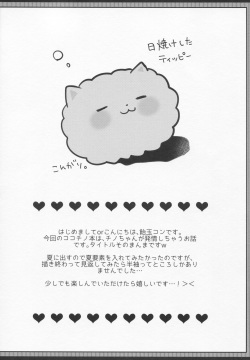 日焼けした
ティッピー
こんがり。
はじめましてorこんにちは、飴玉コンです。
今回のココチノ本は、チノちゃんが発情しちゃうお話
です。タイトルそのまんまですw
夏に出すので夏要素を入れてみたかったのですが、
描き終わって見返してみたら半袖ってところしかあり
ませんでした…
少しでも楽しんでいただけたら嬉しいです…！><